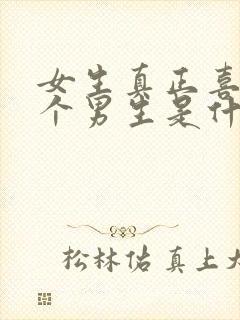 女生真正喜
个男生是什
松林佑真上大